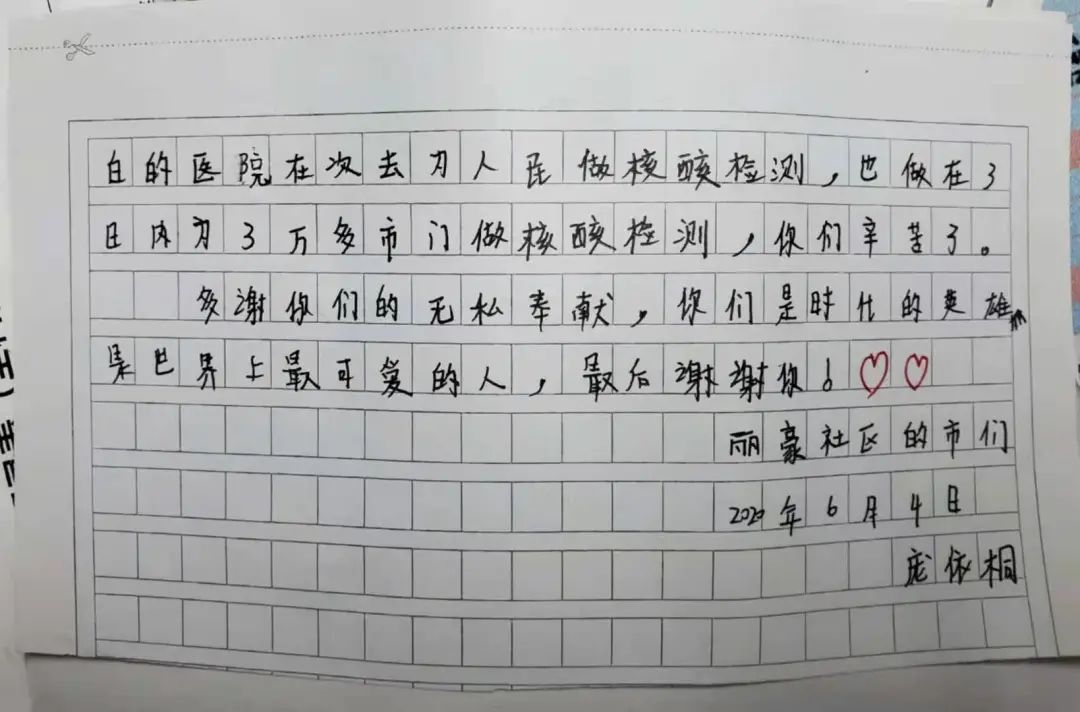 白的医院在次去为人民做核酸检测，也做在3
日内为3万多市门做核酸检测，你们辛苦了。
多谢你们的无私奉献，你们是时代的英雄，
是世界上最可爱的人，最后谢谢你！
丽豪社区的市们
2020年6月4日
庞依桐